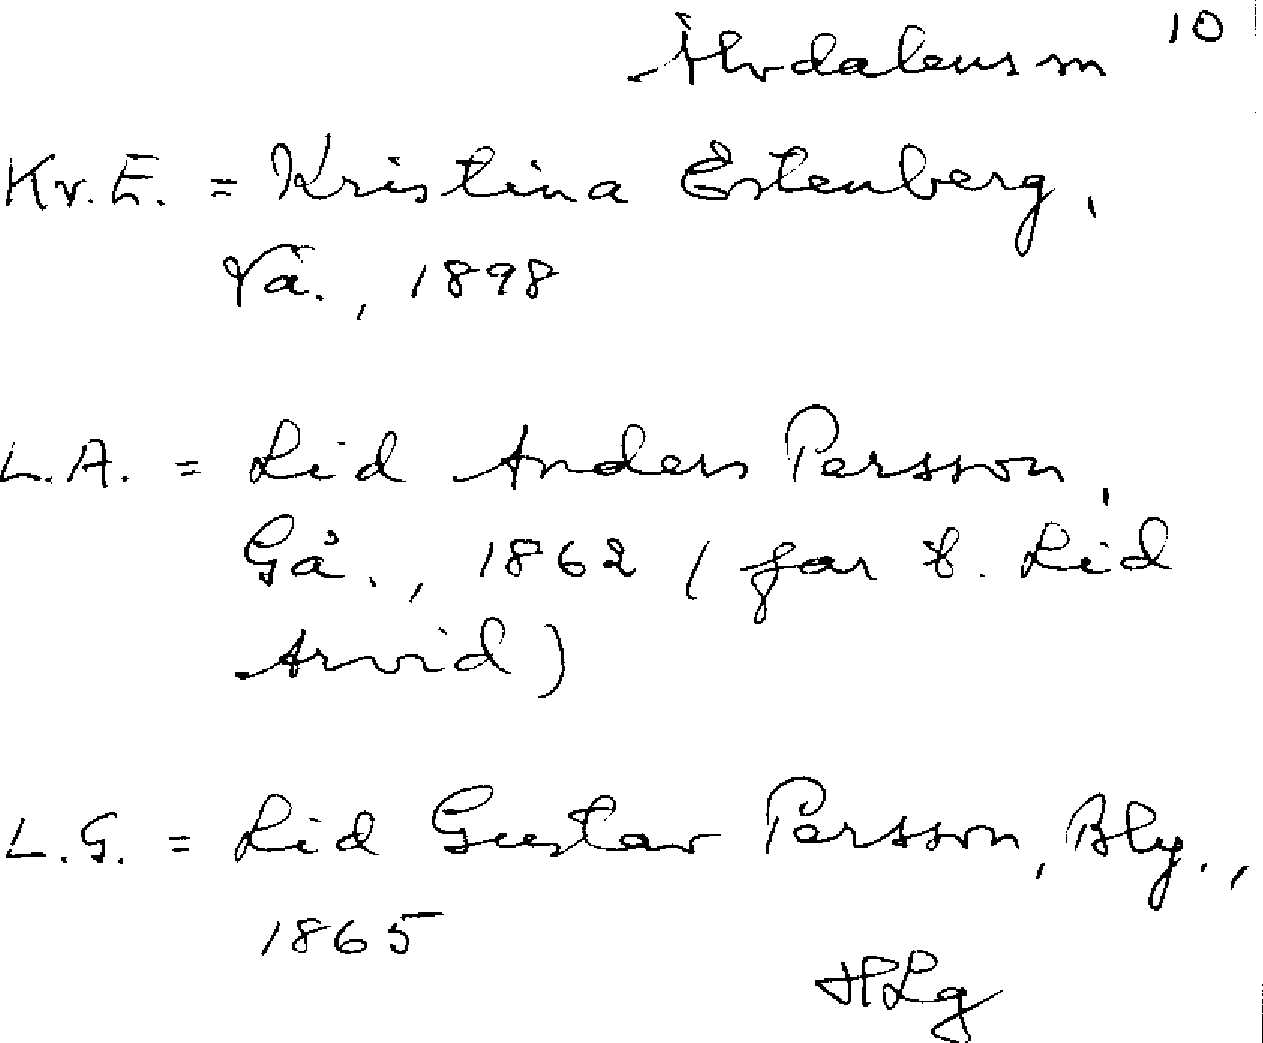 Älvdalens sn 10
Kr.E. = Kristina Estenberg,
Vä., 1898
L.A. = Lid Anders Persson,
Gå., 1862 (far t. Lid
Arvid)
L.G. = Lid Gustav Persson, Bly.,
1865
HLg